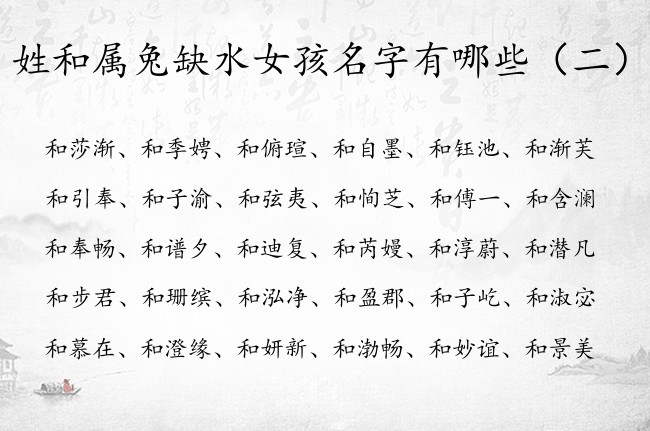 姓和属兔缺水女孩名字有哪些（二）
和莎渐、和季娉、和俯瑄、和自墨、和钰池、和渐芙
和引奉、和子渝、和弦夷、和恂芝、和傅一、和含澜
和奉畅、和谱夕、和迪复、和芮嫚、和淳蔚、和潜凡
和步君、和珊缤、和泓净、和盈郡、和子屹、和淑宓
和慕在、和澄缘、和妍新、和渤畅、和妙谊、和景美